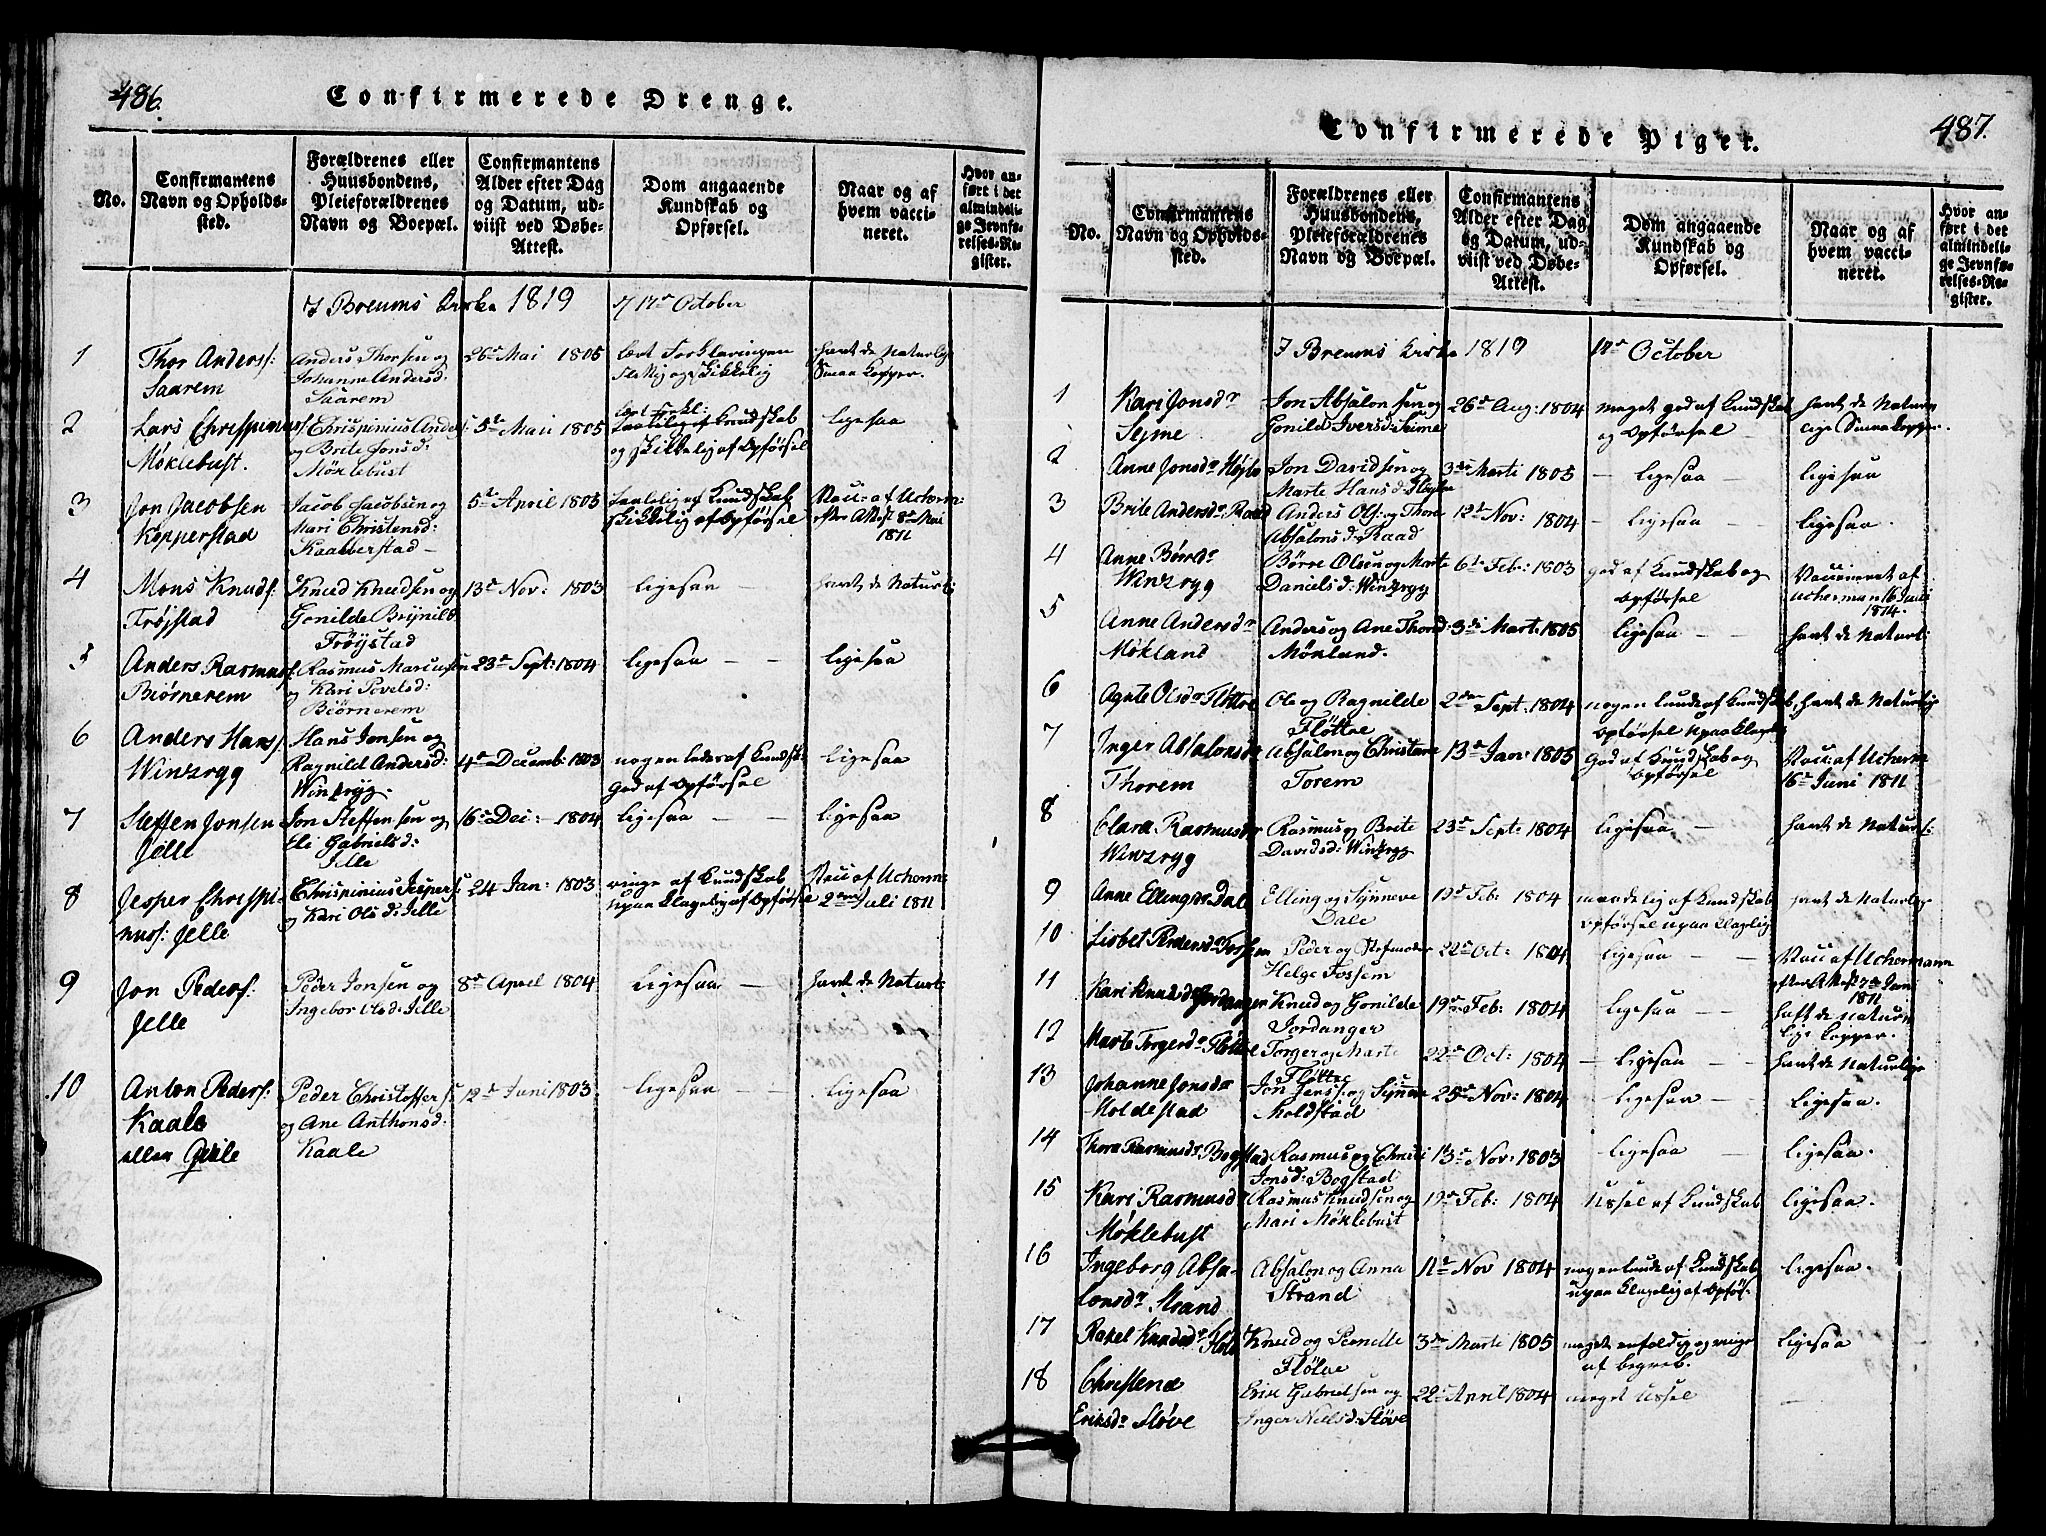 486.
Confirmerede Drenge.
No.
Confirmantens Navn og Opholds-sted.
Forældrenes eller Huusbondens, Pleieforældrenes Navn og Boepæl.
Confirmantens Alder efter Dag og Datum, ud-viist ved Døbe-Attest.
Dom angaaende Kundskab og Opførsel.
Naar og af hvem vacci-neret.
Hvor an-ført i det almindeli-ge Jevnfø-relses-Re-gister.
I Breums Kirke 1819 17de October
1 Thor Anderss: Saarem
Anders Thorsen og Johanne Andersd: Saarem
26de Mai 1805
lært Forklaringen
skikkelig
havt de Naturlige Smaa kopper.
2 Lars Chrispinuss: Møklebust.
Chrispinius Anders og Brite Jonsd: Møklebust
5te Maii 1805
Kundskab og skikkelig af Opførsel
ligesaa
3 Jon Jacobsen Kopperstad
Jacob Jacobsen og Mari Christensd: Kaabberstad -
5te April 1805
taalelig af Kundskab skikkelig af Opførsel
Vacc: af Ucherm: efter Attest 8de Mai 1811
4 Mons Knuds: Trøjstad
Knud Knudsen og Gonilde Brynild Trøystad
13de Nov: 1803
ligesaa -
havt de Naturl:
5 Anders Rasmuss: Biørnerem
Rasmus Marcussen og Kari Povelsd: Biørnerem
23de Sept: 1804
ligesaa - -
ligesaa
6 Anders Hanss: Winzrygg
Hans Jonsen og Ragnild Andersd: Winzryg.
4de Decemb: 1803
nogenledes af Kundsk: god af Opførsel
ligesaa
7 Steffen Jonsen Jelle
Jon Steffensen og Eli Gabrielsd: Jelle
16de Dec: 1804
ligesaa - -
ligesaa
8 Jesper Chrispinuss: Jelle
Chrispinius Jespers: og Kari Olsd: Jelle
24 Jan: 1803
ringe af Kundskab upaaklagelig af Opførsel
Vacc: af Ucherm: 2den Juli 1811
9 Jon Peders: Jelle
Peder Jonsen og Ingebor Olsd: Jelle
8de April 1804
Ligesaa -
havt de Naturl:
10 Anton Peders: Kaale
eller
Peder Christoffers: og Ane Anthonsd: Kaale
12de Juni 1803.
ligesaa -
ligesaa
487.
Confirmerede Piger.
No.
Confirmantens Navn og Opholds-sted.
Forældrenes eller Huusbondens, Pleieforældrenes Navn og Boepæl.
Confirmantens Alder efter Dag og Datum, ud-viist ved Døbe-Attest.
Dom angaaende Kundskab og Opførsel.
Naar og af hvem vacci-neret.
Hvor an-ført i det almindeli-ge Jevnfø-relses-Re-gister.
I Breums Kirke 1819 17de October
1 Kari Jonsdr Sejme
Jon Absalonsen og Gonild Iversd: Seime
26de Aug: 1804
meget god af Kundskab og Opførsel
havt de Naturlige Smaa kopper.
2 Anne Jonsdr
Jon Davidsen og Marte Hansd:
3die Marti 1805
- ligesaa -
ligesaa
3 Brite Andersdr Raad
Anders Ols: og Thore Absalonsd: Raad
12te Nov: 1804
- ligesaa -
ligesaa.
4 Anne Børrdr Winzrygg
Børre Olsen og Marte Danielsd: Winzrygg
6te Feb: 1803
god af Kundskab og Opførsel
Vaccineret af Ucherman 16 Juli 1814.
5 Anne Andersdr Møkland
Anders og Ane Thorsd: Mønland.
3die Mart: 1805
ligesaa -
havt de Naturl:
6 Agnte Olsdr Fløtre
Ole og Ragnilde Fløttre
2den Sept: 1804
nogenlunde af Kundskab, Opførsel upaaklagelig
havt de Naturlige
7 Inger Absalonsdr Thorem
Absalon og Christane Torem
13de Jan: 1805
God af Kundskab og Opførsel
Vacc: af Ucherm 16de Juni 1811
8 Clara Rasmusdr Winzryg
Rasmus og Brite Davidsd: Winzrygg
23de Sept: 1804
ligesaa. -
havt de Naturl:
9 Anne Ellingsdr Dale
Elling og Synneve Dale
19de Feb: 1804
maadelig af Kundskab Opførsel upaaklagelig
havt de Naturlige
10 Lisbet Pedersdr Fossem
Peder og Stefmoder Helge Fossem
22de Oct: 1804
ligesaa - -
Vacc: af Uchermann efter Attest 7de Juni 1811
11 Kari Knudsdr Jordanger
Knud og Gonilde Jordanger
19de Feb: 1804
ligesaa - -
haft de naturlige kopper.
12 Marte Torgersdr Fløttre
Torger og Marte Fløttre
22de Oct: 1804
- ligesaa - -
havt de Naturlige
13 Johanne Jonsdr Moldestad
Jon Jenss: og Synneve Moldstad
25de Nov: 1804
ligesaa -
ligesaa.
14 Thora Rasmusdr Bogstad
Rasmus og Christi Jonsd: Bogstad
13de Nov: 1803
ligesaa -
ligesaa.
15 Kari Rasmusdr Møklebust
Rasmus Knudsen og Mari Møklebust
19de Feb: 1804
Ussel af Kundskab
ligesaa.
16 Ingeborg Absalonsdr Strand
Absalon og Anna Strand
11te Nov 1804
nogenlunde af Kundskab upaaklagelig af Opførs:
ligesaa.
17 Rakel Knudsdr
Knud og Pernille Fløtre
3die Marti 1805
meget enfoldig og ringe af begreb.
ligesaa
18 Christena Eriksdr Støve
Erik Gabrielsen og Inger Nielsd: Støve
22de April 1804
meget ussel